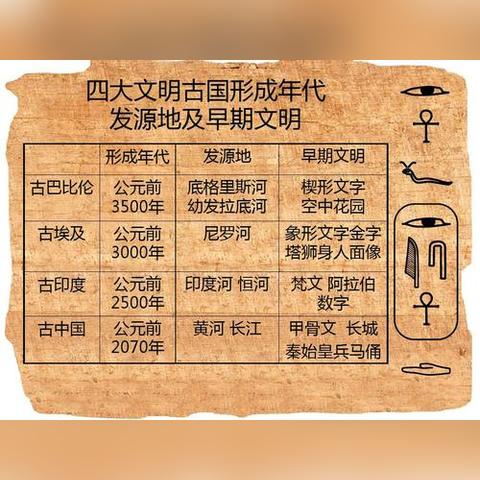 四大文明古国形成年代
发源地及早期文明
形成年代 发源地 早期文明
古巴比伦 公元前 底格里斯河 楔形文字
3500年 幼发拉底河 空中花园
古埃及 公元前 尼罗河 象形文字金字
3000年 塔狮身人面像
古印度 公元前 印度河 恒河 梵文 阿拉伯
2500年 数字
古中国 公元前 黄河 长江 甲骨文 长城
2070年 秦始皇兵马俑